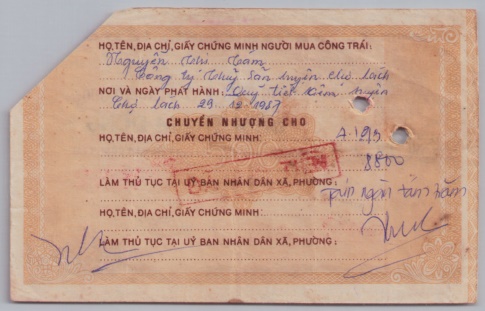 HỌ, TÊN, ĐỊA CHỈ, GIẤY CHỨNG MINH NGƯỜI MUA CÔNG TRÁI:
Nguyễn Thị Tám
Công ty Thuỷ sản huyện chợ lách
NƠI VÀ NGÀY PHÁT HÀNH: Quỹ tiết kiệm huyện
Chợ lách 29 12 1987
CHUYỂN NHƯỢNG CHO
HỌ, TÊN, ĐỊA CHỈ, GIẤY CHỨNG MINH:
8800
LÀM THỦ TỤC TẠI UỶ BAN NHÂN DÂN XÃ, PHƯỜNG:
tám ngàn tám trăm
HỌ, TÊN, ĐỊA CHỈ, GIẤY CHỨNG MINH:
LÀM THỦ TỤC TẠI UỶ BAN NHÂN DÂN XÃ, PHƯỜNG: